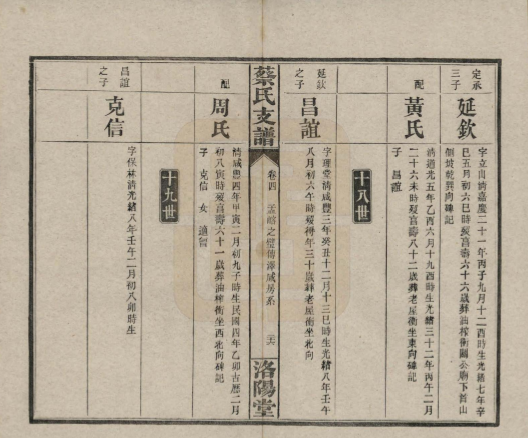 定承
三子
延欽
字立山清嘉慶二十一年丙子九月十二酉時生光緒七年辛
巳五月初六巳時歿享壽六十六歲葬油榨衝關公廟下首山
側坡乾巽向碑記
配
黃氏
清道光五年乙酉六月十九酉時生光緒三十二年丙午二月
二十六未時歿享壽八十二歲葬老屋衝坐東向碑記
子 昌誼
十八世
延欽
之子
昌誼
字理堂清咸豐三年癸丑十二月十三巳時生光緒八年壬午
八月初六午時歿得年三十歲葬老屋衝坐北向
蔡氏支譜
卷四
世傳澤咸房系
洛陽堂
配
周氏
清咸豐四年甲寅二月初九子時生民國四年乙卯古曆二月
初八寅時歿享壽六十一歲葬油榨衝坐西北向碑記
子 克信 女 適
十九世
昌誼
之子
克信
字保林清光緒八年壬午二月初八卯時生